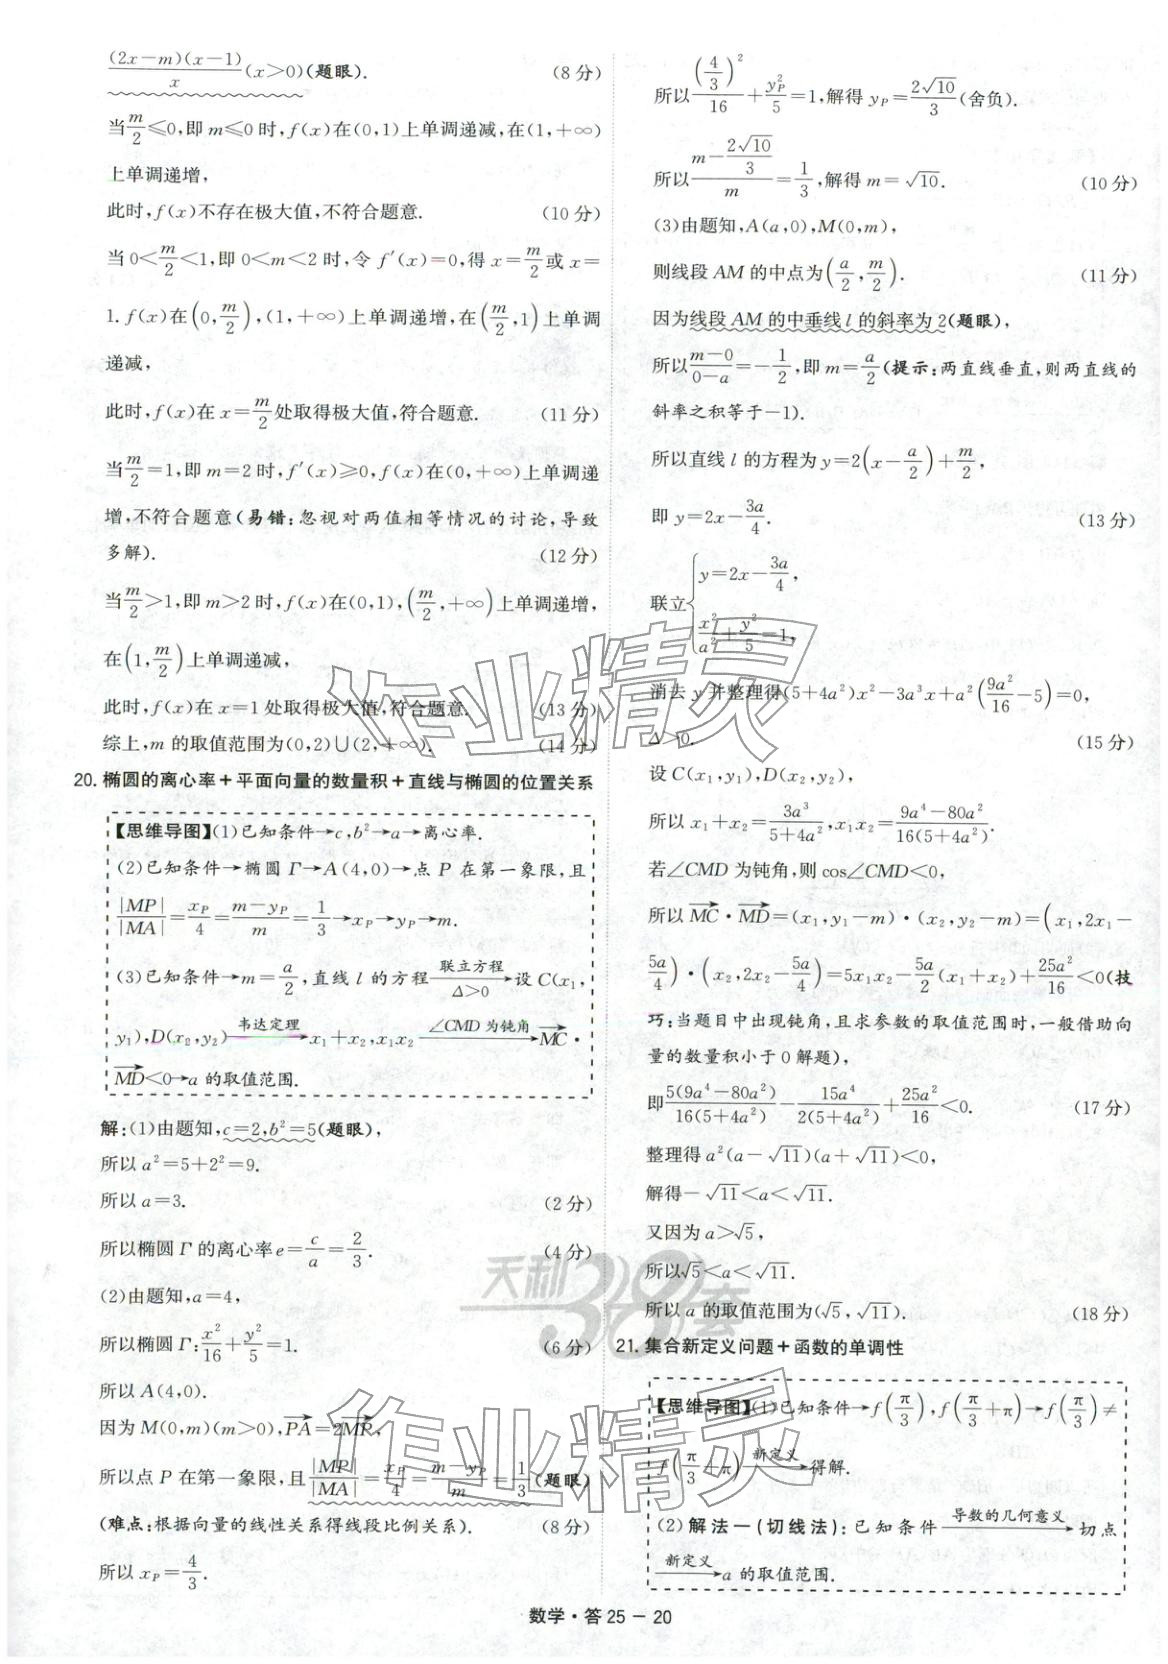 (2x-m)(x-1)/x (x>0)(题眼). (8分)
当m/2≤0,即m≤0时,f(x)在(0,1)上单调递减,在(1,+∞)
上单调递增,
此时,f(x)不存在极大值,不符合题意. (10分)
当0<m/2<1,即0<m<2时,令f′(x)=0,得x=m/2或x=
1.f(x)在(0,m/2),(1,+∞)上单调递增,在(m/2,1)上单调
递减,
此时,f(x)在x=m/2处取得极大值,符合题意. (11分)
当m/2=1,即m=2时,f′(x)≥0,f(x)在(0,+∞)上单调递
增,不符合题意(易错:忽视对两值相等情况的讨论,导致
多解). (12分)
当m/2>1,即m>2时,f(x)在(0,1),(m/2,+∞)上单调递增,
在(1,m/2)上单调递减,
此时,f(x)在x=1处取得极大值,符合题意. (13分)
综上,m的取值范围为(0,2)∪(2,+∞). (14分)
20. 椭圆的离心率+平面向量的数量积+直线与椭圆的位置关系
【思维导图】(1)已知条件→c,b²→a→离心率.
(2)已知条件→椭圆Γ→A(4,0)→点P在第一象限,且
|MP|/|MA|=x_P/4=(m-y_P)/m=1/3→x_P→y_P→m.
(3)已知条件→m=a/2,直线l的方程 联立方程/Δ>0→设C(x₁,
y₁),D(x₂,y₂) 韦达定理→x₁+x₂,x₁x₂ ∠CMD为钝角→MC·
MD<0→a的取值范围.
解:(1)由题知,c=2,b²=5(题眼),
所以a²=5+2²=9.
所以a=3. (2分)
所以椭圆Γ的离心率e=c/a=2/3. (4分)
(2)由题知,a=4,
所以椭圆Γ:x²/16+y²/5=1. (6分)
所以A(4,0).
因为M(0,m)(m>0),PA=2MP,
所以点P在第一象限,且|MP|/|MA|=x_P/4=(m-y_P)/m=1/3(题眼)
(难点:根据向量的线性关系得线段比例关系). (8分)
所以x_P=4/3.
所以(4/3)²/16+y_P²/5=1,解得y_P=2√10/3(舍负).
所以(m-2√10/3)/m=1/3,解得m=√10. (10分)
(3)由题知,A(a,0),M(0,m),
则线段AM的中点为(a/2,m/2). (11分)
因为线段AM的中垂线l的斜率为2(题眼),
所以(m-0)/(0-a)=-1/2,即m=a/2(提示:两直线垂直,则两直线的
斜率之积等于-1).
所以直线l的方程为y=2(x-a/2)+m/2,
即y=2x-3a/4. (13分)
联立{y=2x-3a/4,
x²/a²+y²/5=1,
消去y并整理得(5+4a²)x²-3a³x+a²(9a²/16-5)=0,
Δ>0. (15分)
设C(x₁,y₁),D(x₂,y₂),
所以x₁+x₂=3a³/(5+4a²),x₁x₂=(9a⁴-80a²)/16(5+4a²).
若∠CMD为钝角,则cos∠CMD<0,
所以MC·MD=(x₁,y₁-m)·(x₂,y₂-m)=(x₁,2x₁-
5a/4)·(x₂,2x₂-5a/4)=5x₁x₂-5a/2(x₁+x₂)+25a²/16<0(技
巧:当题目中出现钝角,且求参数的取值范围时,一般借助向
量的数量积小于0解题),
即5(9a⁴-80a²)/16(5+4a²)-15a⁴/2(5+4a²)+25a²/16<0. (17分)
整理得a²(a-√11)(a+√11)<0,
解得-√11<a<√11.
又因为a>√5,
所以√5<a<√11.
所以a的取值范围为(√5,√11). (18分)
21. 集合新定义问题+函数的单调性
【思维导图】(1)已知条件→f(π/3),f(π/3+π)→f(π/3)≠
f(π/3+π) 新定义→得解.
(2)解法一(切线法):已知条件 导数的几何意义→切点
新定义→a的取值范围.
数学·答25-20
作业精灵
天利38套
作业精灵